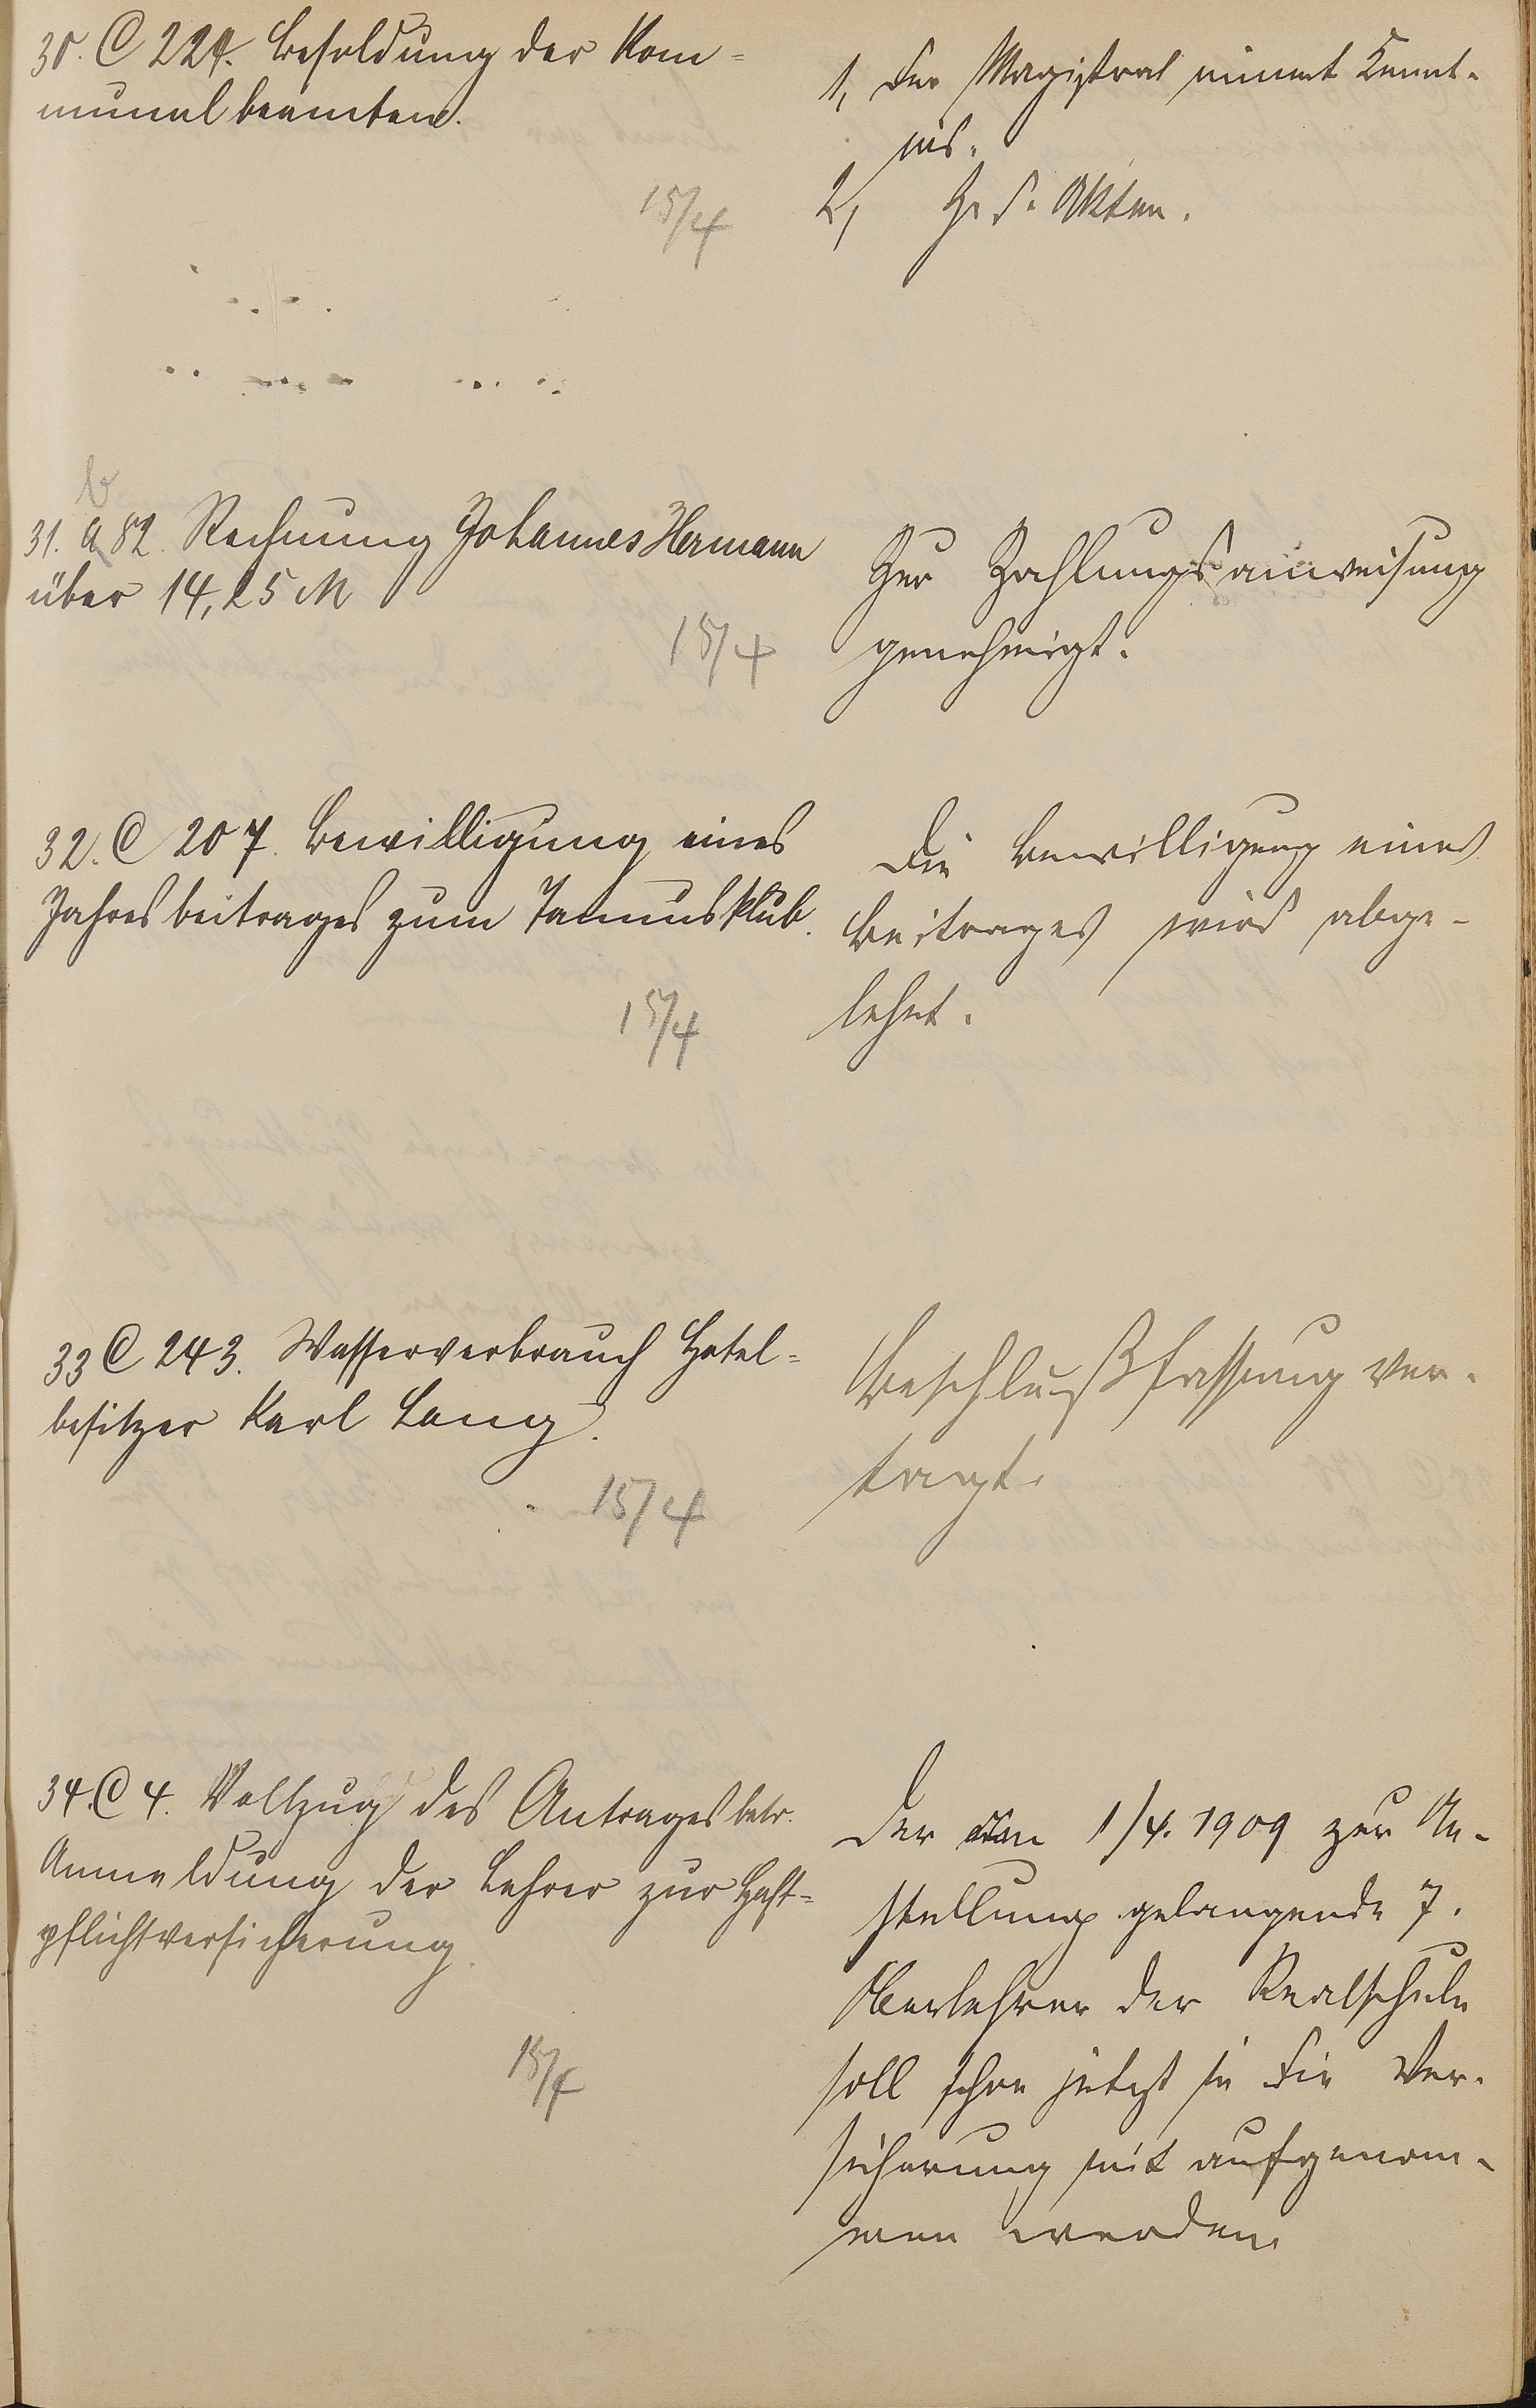 30. C 224. Besoldung der Kom-
munalbeamten.
15/4
1, Der Magistrat nimmt Kennt-
nis.
2, Z. d. Akten.
b
31. a 82. Rechnung Johannes Hermann
über 14,25 M
15/4
Zur Zahlungsanweisung
genehmigt.
32. C 207. Bewilligung eines
Jahresbeitrages zum Taunusklub.
15/4
Die Bewilligung eines
Beitrages wird abge-
lehnt.
33 C 243. Wasserverbrauch Hotel-
besitzer Karl Lang.
15/4
Beschlußfassung ver-
tagt.
34. C 4. Vollzug des Antrages betr.
Anmeldung der Lehrer zur Haft-
pflichtversicherung.
15/4
Der am 1/4. 1909 zur An-
stellung gelangende 7.
Oberlehrer der Realschule
soll schon jetzt in die Ver-
sicherung mit aufgenom-
men werden.